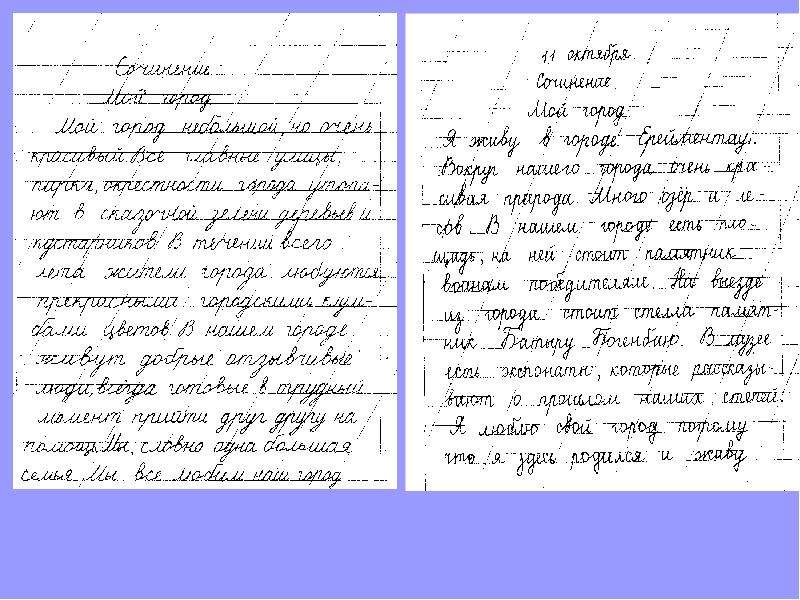 Сочинение
Мой город
Мой город небольшой, но очень
красивый. Все главные улицы,
парки, окрестности города утопа-
ют в сказочной зелени деревьев и
кустарников. В течении всего
лета жители города любуются
прекрасными городскими клум-
бами цветов. В нашем городе
живут добрые отзывчивые
люди, всегда готовые в трудный
момент прийти друг другу на
помощь. Мы, словно одна большая
семья. Мы все любим наш город
11 октября
Сочинение
Мой город
Я живу в городе Ерейментау.
Вокруг нашего города очень кра
сивая природа. Много озёр и ле-
сов. В нашем городе есть пло-
щадь, на ней стоит памятник
воинам победителям. На выезде
из города стоит стелла памят-
ник Батыру Богенбаю. В музее
есть экспонаты, которые рассказы-
вают о прошлом наших степей.
Я люблю свой город потому
что, я здесь родился и живу